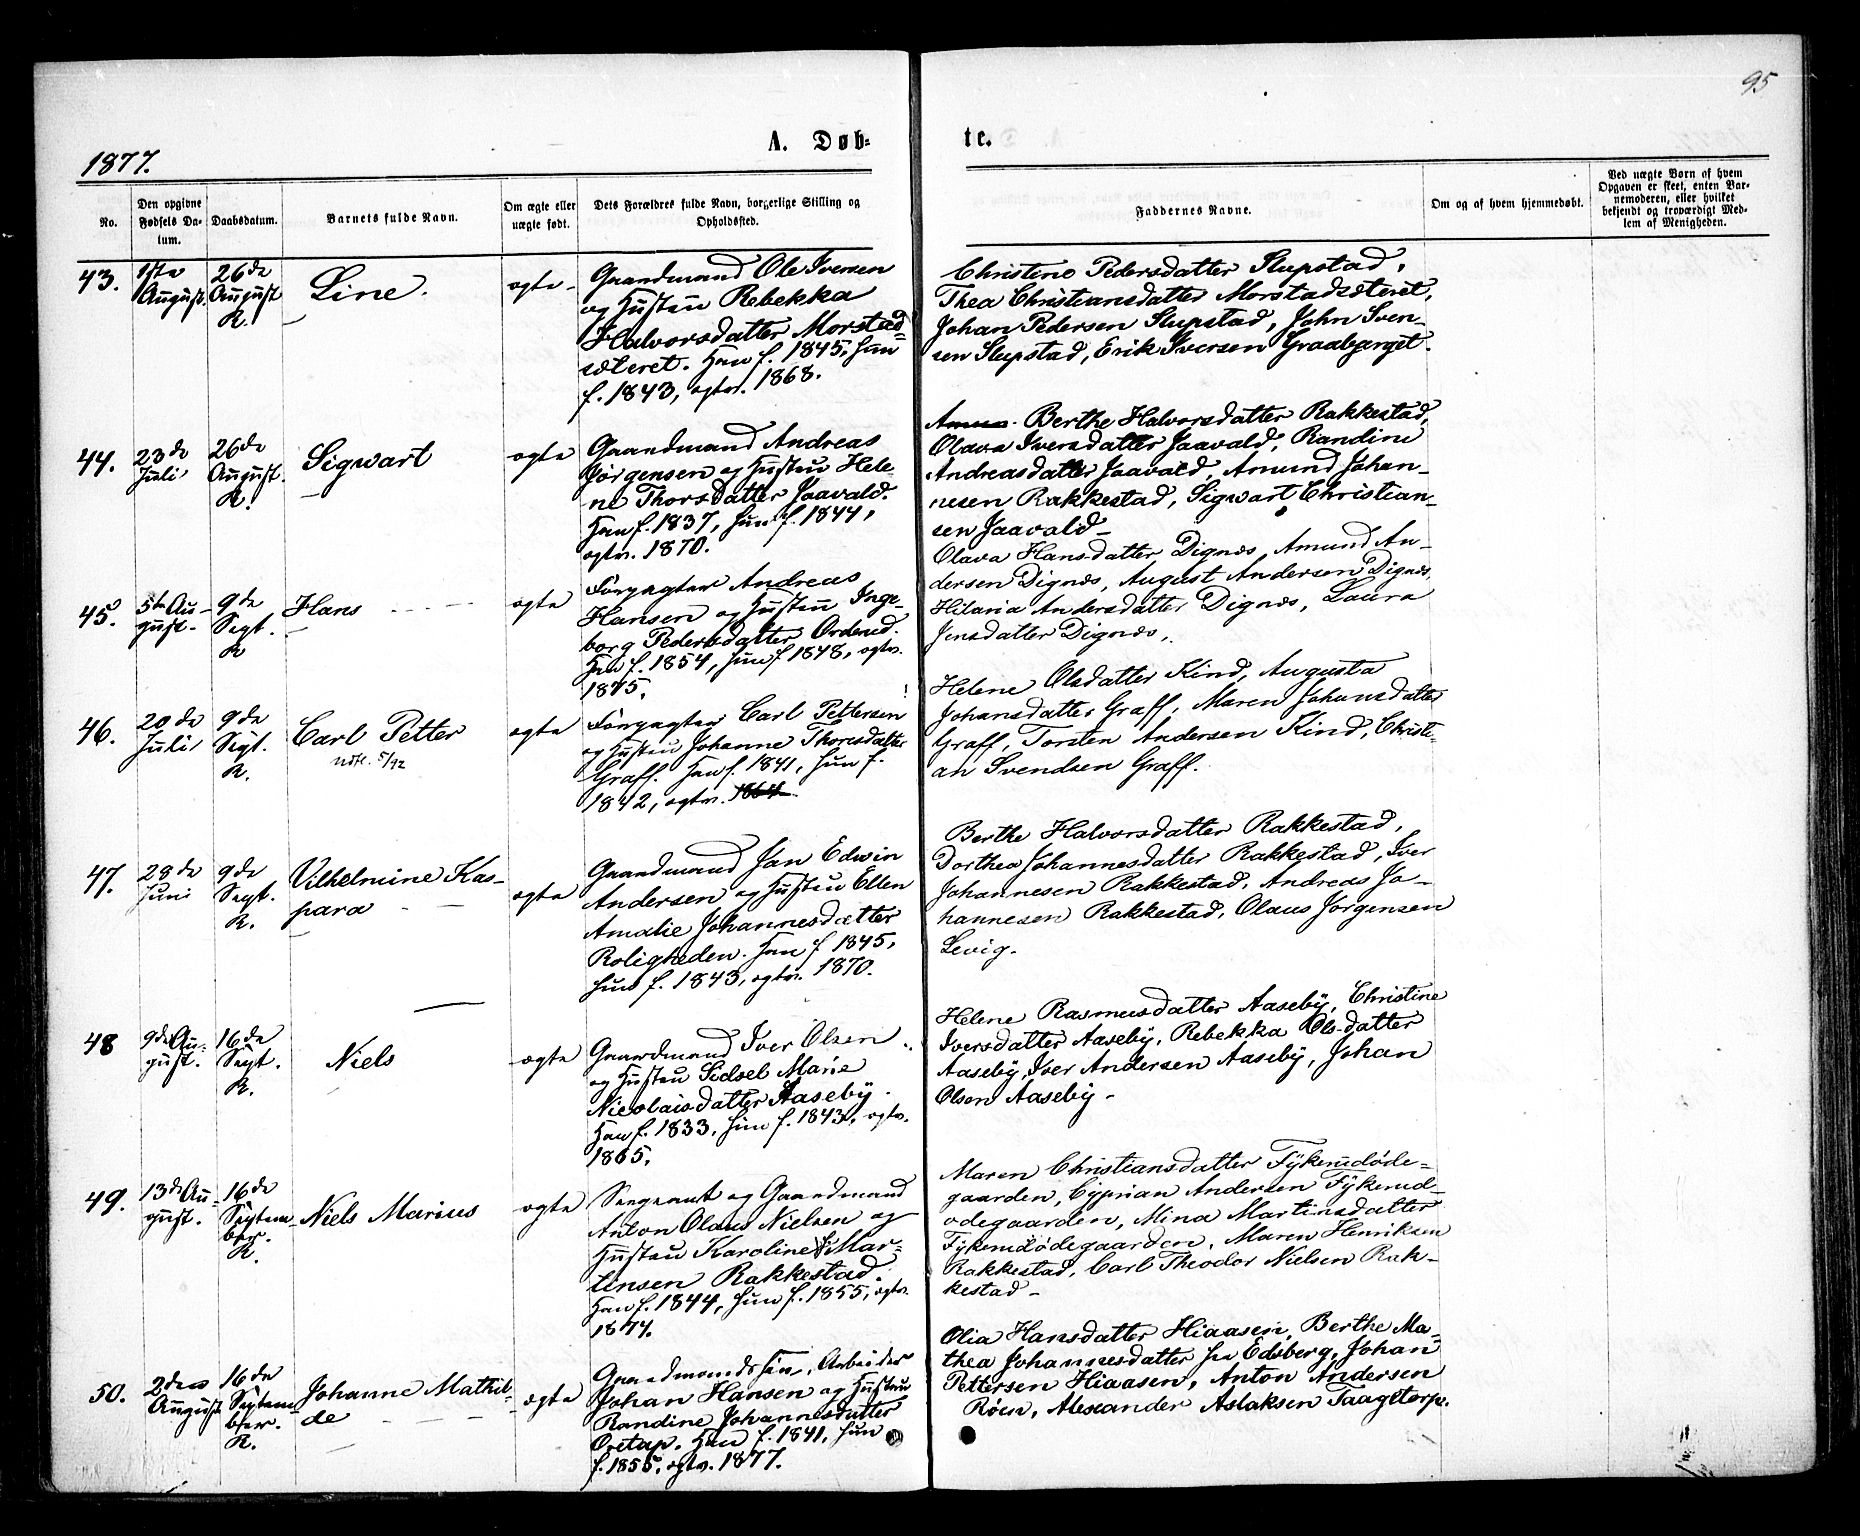 95
1877.
A. Døb-
te.
No.
Den opgivne
Fødsels Da-
tum.
Daabsdatum.
Barnets fulde Navn.
Om ægte eller
uægte født.
Dets Forældres fulde Navn, borgerlige Stilling og
Opholdssted.
Faddernes Navne.
Om og af hvem hjemmedøbt.
Ved uægte Børn af hvem
Opgaven er skeet, enten Bar-
nemoderen, eller hvilket
bekjendt og troværdigt Med-
lem af Menigheden.
43.
1ste
August.
26de
August
K.
Line.
ægte
Gaardmand Ole Iversen
og Hustru Rebekka
Halvorsdatter Morstad-
sæteret. Han f. 1845, hun
f. 1843, ægtv. 1868.
Christine Pedersdatter Slupstad,
Thea Christiansdatter Morstadsæteret,
Johan Pedersen Slupstad, John Sven-
sen Slupstad, Erik Iversen Graabjerget.
44.
23de
Juli
26de
August.
K.
Sigwart
ægte
Gaardmand Andreas
Jørgensen og Hustru Hele-
ne Thorsdatter Jaavald.
Han f. 1837, hun f. 1844,
ægtv. 1870.
Anna Berthe Halvorsdatter Rakkestad,
Olava Iversdatter Jaavald, Randine
Andreasdatter Jaavald, Amund Johan-
nesen Rakkestad, Sigwart Christian-
sen Jaavald
45.
5te Au-
gust.
9de
Sept.
K
Hans
ægte
Forpagter Andreas
Hansen og Hustru Inge-
borg Pedersdatter
Han f. 1854, hun f. 1848, ægtv.
1875.
Olava Hansdatter Dignæs, Amund An-
dersen Dignæs, August Andersen Dignæs,
Hilaria Andersdatter Dignæs, Laura
Jensdatter Dignæs.
46.
20de
Juli
9de
Sept.
K.
Carl Petter
5/12
ægte
Forpagter Carl Pettersen
og Hustru Johanne Thoresdatter
Graff. Han f. 1841, hun f.
1842, ægtv. 1864
Helene Olsdatter Kind, Augusta
Johansdatter Graff, Maren Johansdatter
Graff, Torsten Andersen Kind, Christi-
an Svendsen Graff.
47.
28de
Juni
9de
Sept.
K.
Vilhelmine Kas-
para
ægte
Gaardmand Jan Edwin
Andersen og Hustru Ellen
Amalie Johannesdatter
Roligheden. Han f 1845,
hun f. 1843, ægtv. 1870.
Berthe Halvorsdatter Rakkestad,
Dorthea Johannesdatter Rakkestad, Iver
Johannesen Rakkestad, Andreas Jo-
hannesen Rakkestad, Olaus Jørgensen
Levig.
48
9de Au-
gust.
16de
Sept.
K.
Niels
ægte
Gaardmand Iver Olsen
og Hustru Sidsel Marie
Nicolaisdatter Aaseby.
Han f. 1833, hun f. 1843, ægtv.
1865.
Helene Rasmusdatter Aaseby, Christine
Iversdatter Aaseby, Rebekka Olsdatter
Aaseby, Iver Andersen Aaseby, Johan
Olsen Aaseby.
49.
13de Au-
gust.
16de
Septem
ber.
K.
Niels Marius
ægte
Sergeant og Gaardmand
Anton Olaus Nielsen og
Hustru Karoline Mar-
tinsen Rakkestad.
Han f. 1844, hun f. 1855, ægtv.
1874.
Maren Christiansdatter Fykerudøde-
gaarden, Cyprian Andersen Fykerud-
ødegaarden, Mina Martinsdatter
Fykerudødegaarden, Maren Henriksen
Rakkestad, Carl Theodor Nielsen Rak-
kestad
50.
2den
August
16de
Septem
ber.
K.
Johanne Mathil-
de
ægte
Gaardmandssøn, Arbeider
Johan Hansen og Hustru
Randine Johannesdatter
Han f. 1841, hun
f. 1855, ægtv. 1877.
Olia Hansdatter Hiaasen, Berthe Ma-
thea Johannesdatter fra Edsberg, Johan
Pettersen Hiaasen, Anton Andersen
Røen, Alexander Aslaksen Taagetorp.